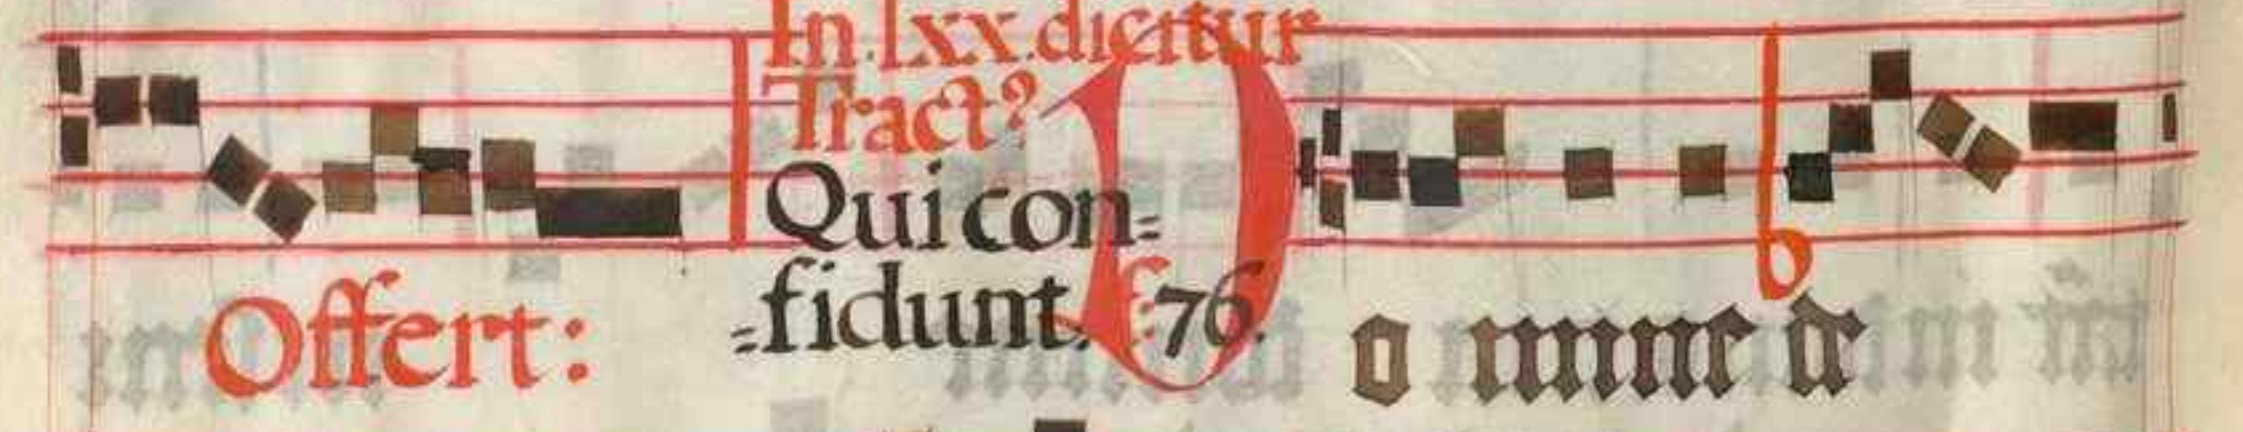 In .lxx. dicitur
Tractꝰ
Qui con=
=fidunt. f: 76.
Offert: D o mine de